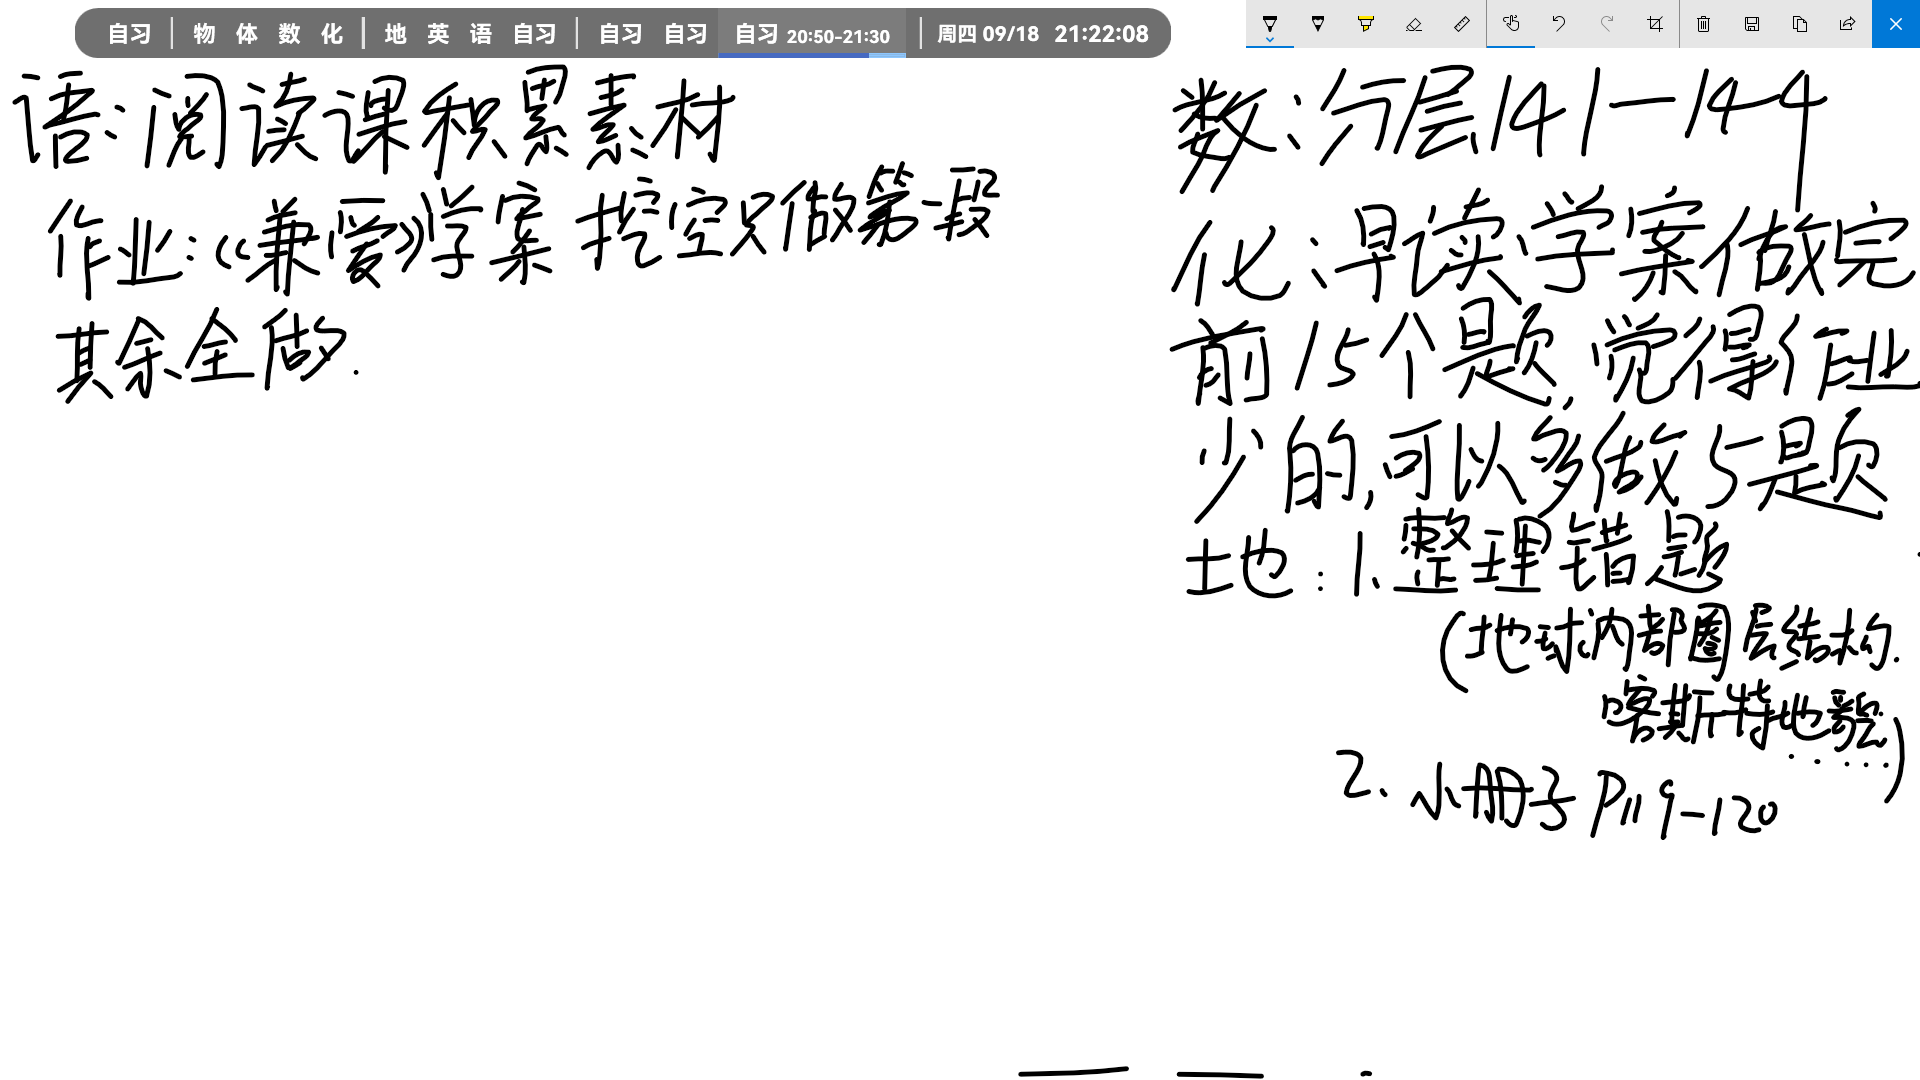 自习 | 物 体 数 化 | 地 英 语 自习 | 自习 自习 自习 20:50-21:30 | 周四 09/18 21:22:08
语:阅读课积累素材
作业:《兼爱》学案 挖空只做第一段
其余全做.
数:分层141—144
化:早读学案做完
前15个题,觉得作业
少的,可以多做5题
地:1.整理错题
(地球内部圈层结构.
喀斯特地貌......)
2.小册子P119-120